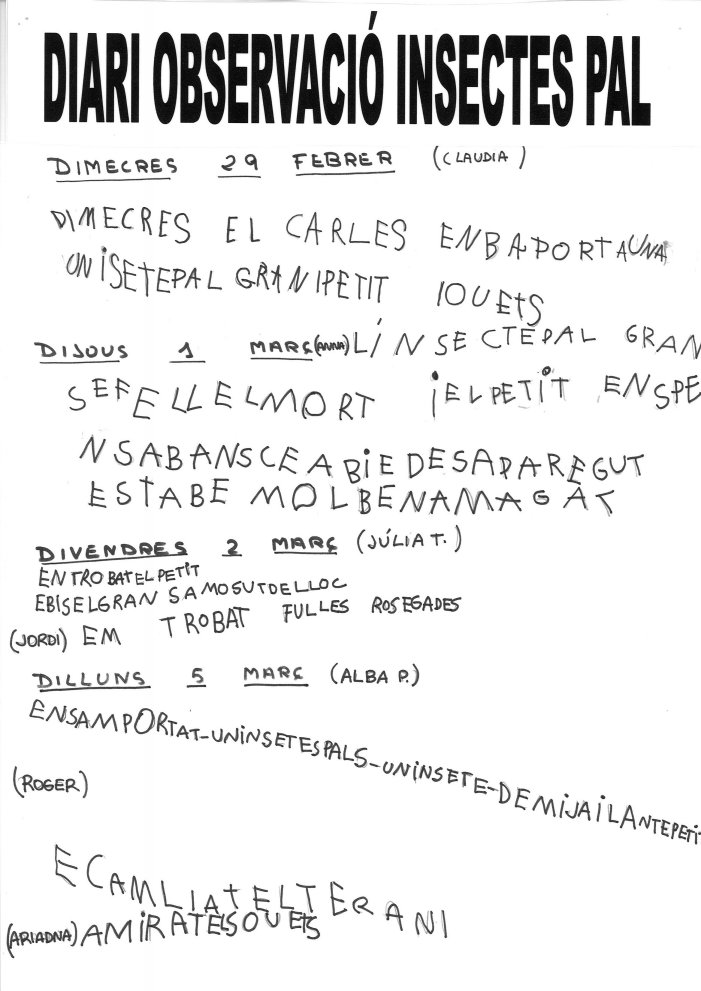 DIARI OBSERVACIÓ INSECTES PAL
DIMECRES 29 FEBRER (CLAUDIA)
DIMECRES EL CARLES ENBAPORTAUNA
UNISETEPAL GRANIPETIT IOUETS
DIJOUS 1 MARÇ (ANNA) LÍNSECTEPAL GRAN
SEFELLELMORT iELPETIT ENSPE
NSABANSCEABIEDESAPAREGUT
ESTABE MOLBENAMAGAT
DIVENDRES 2 MARÇ (JÚLIA T.)
ENTROBATELPETIT
EBISELGRAN SAMOSUTDELLOC
(JORDI) EM TROBAT FULLES ROSEGADES
DILLUNS 5 MARÇ (ALBA P.)
ENSAMPORTAT-UNINSETESPALS-UNINSETE-DEMIJAILANTEPETIT
(ROGER)
ECAMLIATELTERANI
(ARIADNA) AMIRATELSOUETS